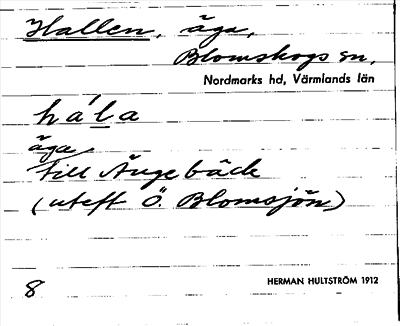 Hallen, äga,
Blomskogs sn,
Nordmarks hd, Värmlands län
hála
äga
till Ängebäck
(uteft Ö. Blomsjön)
8
HERMAN HULTSTRÖM 1912